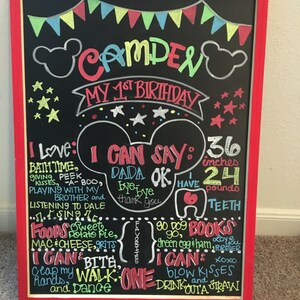 CAMDEN
MY 1ST BIRTHDAY
I LOVE:
BATH TIME,
giving KISSES, PEEK-A-BOO,
PLAYING WITH MY
BROTHER and
LISTENING TO DALE
SING
I CAN SAY:
DADA OK
bye-bye
thank you
36 inches
24 pounds
I HAVE
TEETH
FOODS: SWEET POTATO PIE,
MAC & CHEESE, GRITS
FAVORITE
BOOKS
GO DOG GO,
green egg & ham,
I CAN:
CLAP my hands,
BITE
WALK
and DANCE
ONE
I CAN: XOXO
BLOW KISSES
and
DRINK OUT A STRAW